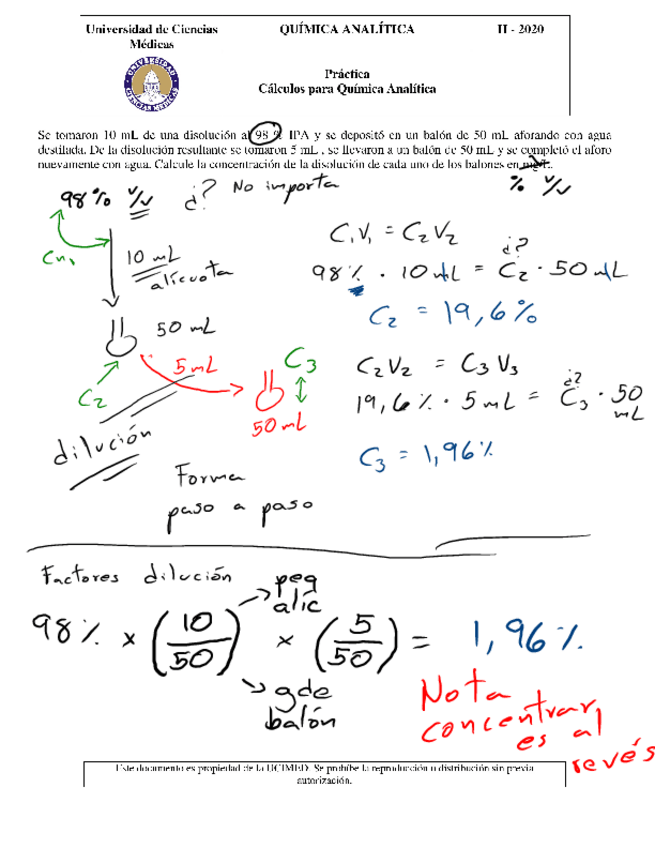 Universidad de Ciencias Médicas
QUÍMICA ANALÍTICA
II - 2020
UNIVERSIDAD
CIENCIAS MÉDICAS
Práctica
Cálculos para Química Analítica
Se tomaron 10 mL de una disolución al 98 % IPA y se depositó en un balón de 50 mL aforando con agua
destilada. De la disolución resultante se tomaron 5 mL , se llevaron a un balón de 50 mL y se completó el aforo
nuevamente con agua. Calcule la concentración de la disolución de cada uno de los balones en
% v/v
98% v/v ¿? No importa
Cn1
10 mL
alícuota
C1V1 = C2V2
¿?
98% · 10 mL = C2 · 50 mL
C2 = 19,6%
50 mL
C2
5 mL
C3
50 mL
C2V2 = C3V3
¿?
19,6% · 5 mL = C3 · 50 mL
C3 = 1,96%
dilución
Forma
paso a paso
Factores dilución
peq
alíc
98% × (10/50) × (5/50) = 1,96%
gde
balón
Nota
concentrar
es al
revés
Este documento es propiedad de la UCIMED. Se prohíbe la reproducción o distribución sin previa
autorización.